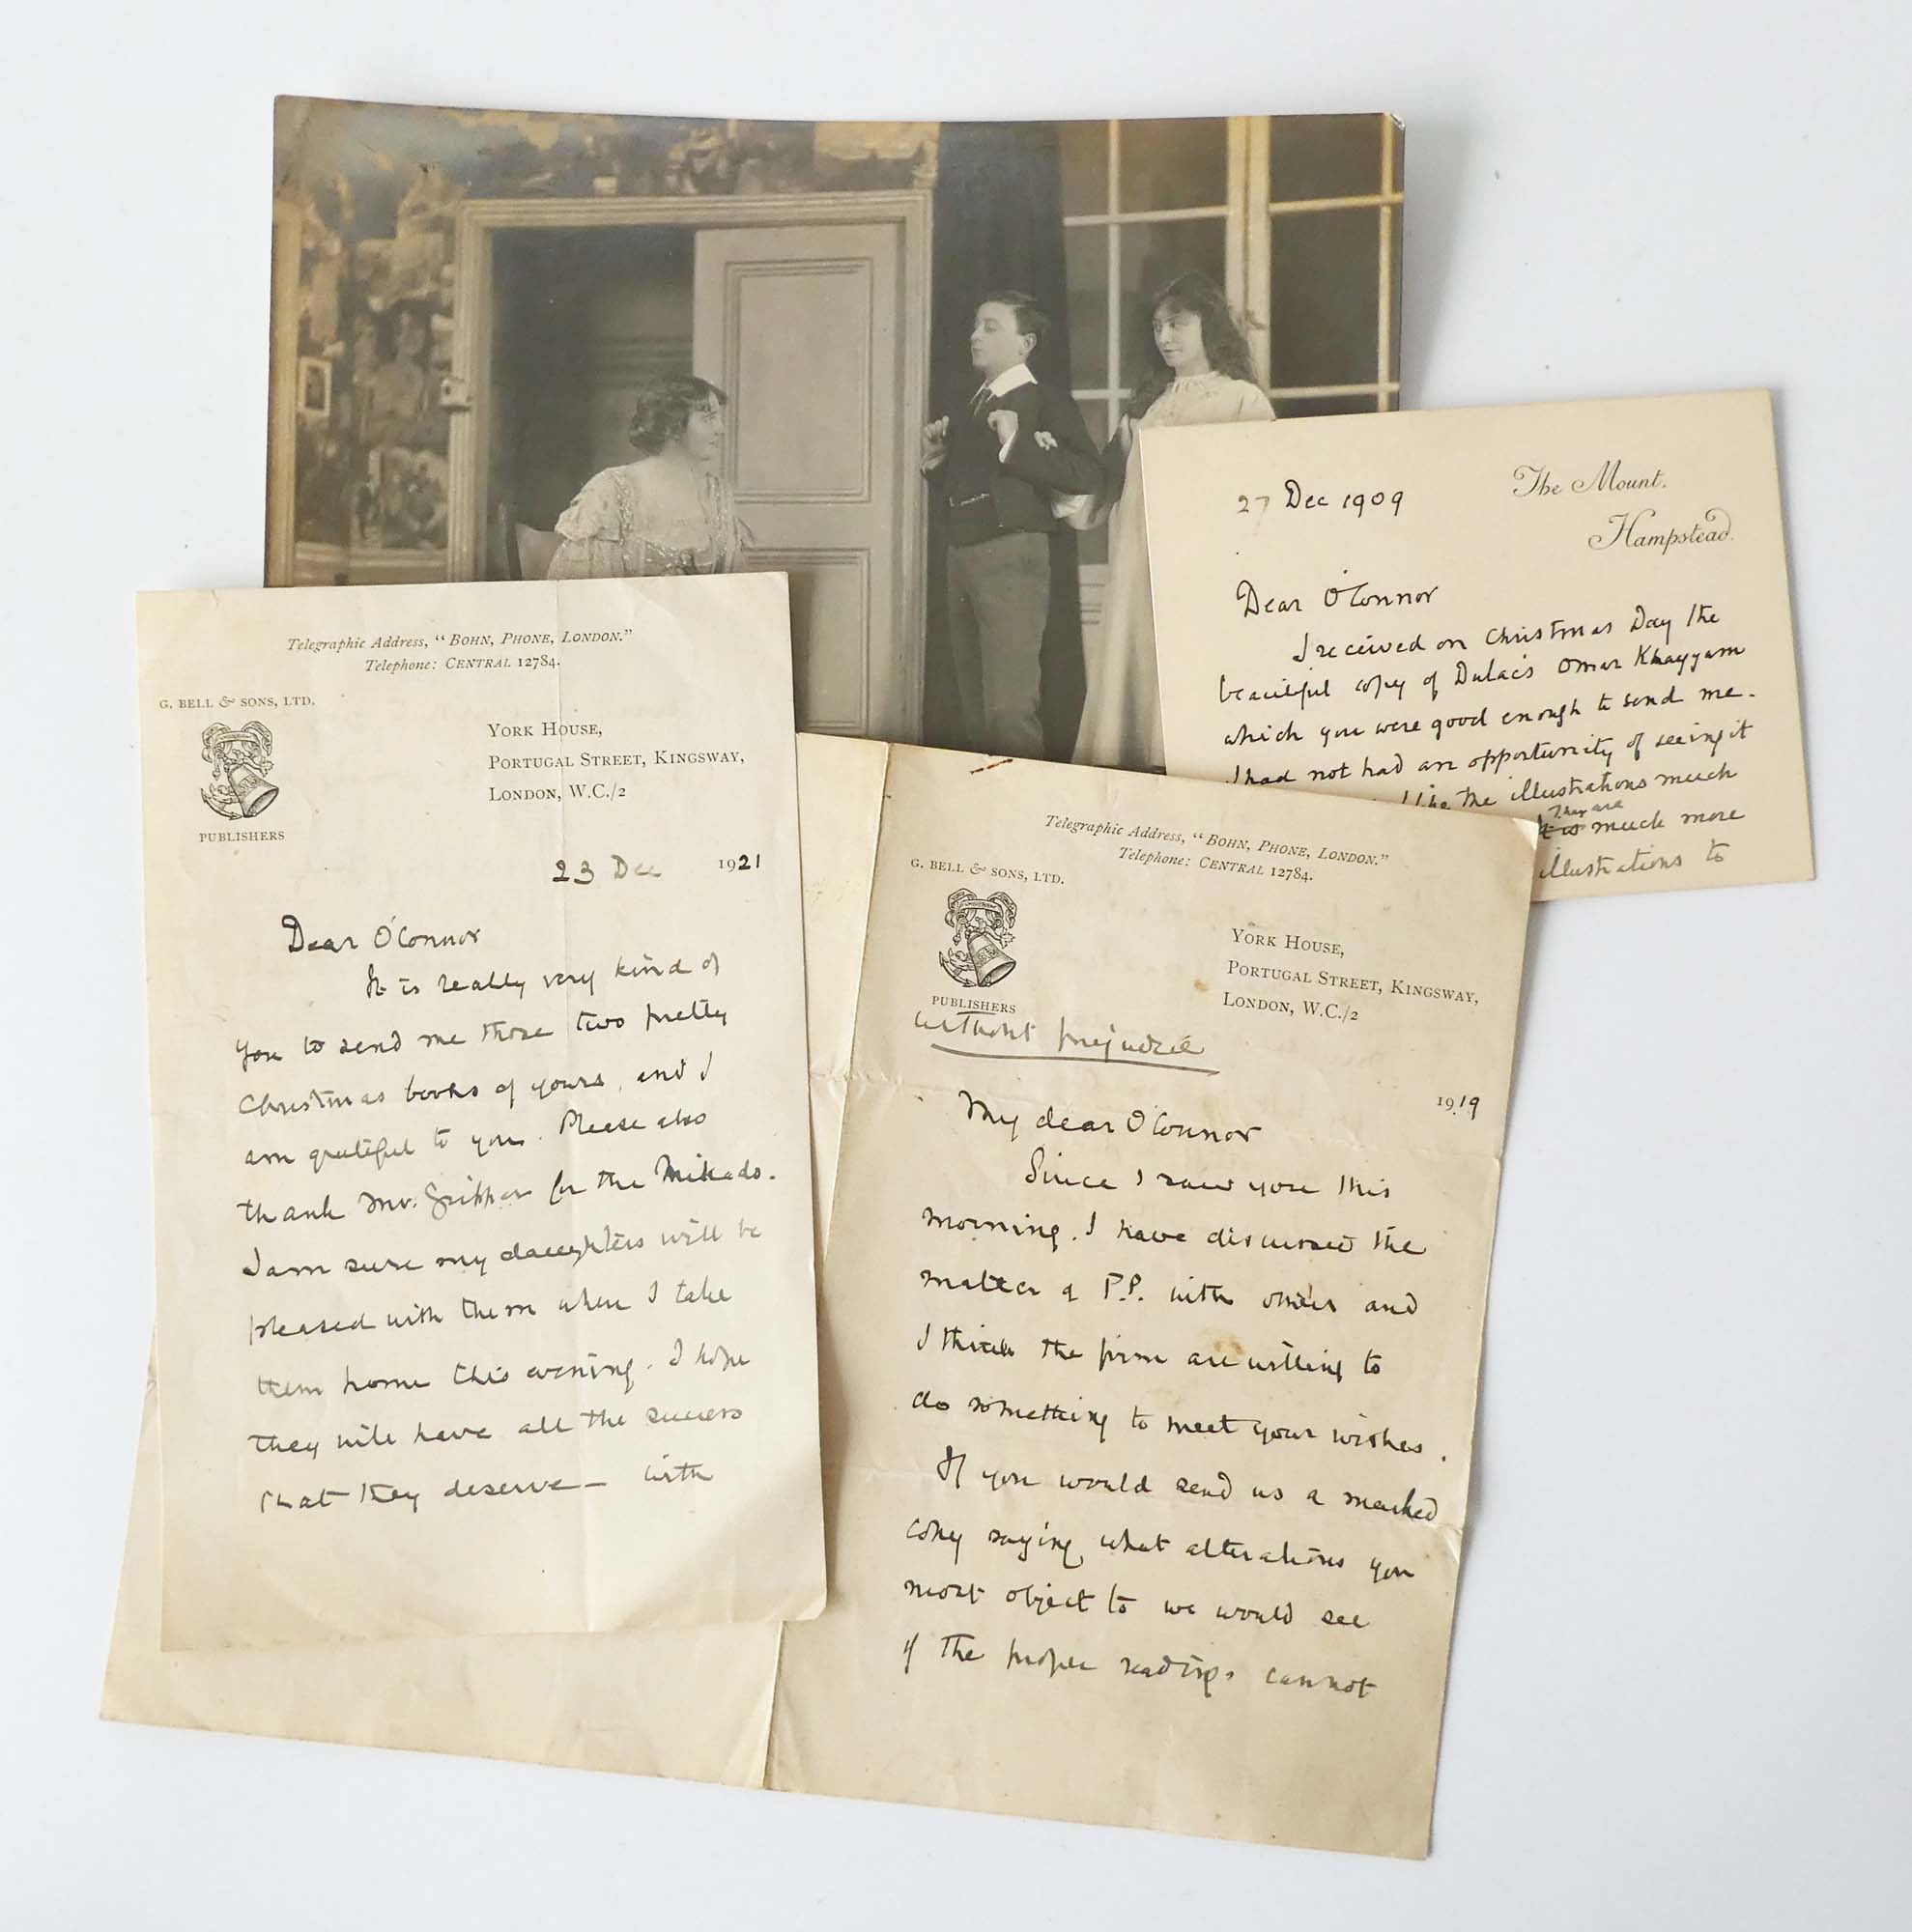 27 Dec 1909
The Mount.
Hampstead.
Dear O'Connor
I received on Christmas Day the
beautiful copy of Dulac's Omar Khayyam
which you were good enough to send me.
I had not had an opportunity of seeing it
like the illustrations much
They are
it is much more
illustrations to
Telegraphic Address, "BOHN, PHONE, LONDON."
Telephone: CENTRAL 12784.
G. BELL & SONS, LTD.
PUBLISHERS
YORK HOUSE,
PORTUGAL STREET, KINGSWAY,
LONDON, W.C./2
23 Dec 1921
Dear O'Connor
It is really very kind of
you to send me those two pretty
Christmas books of yours, and I
am grateful to you. Please also
thank Mr. for the Mikado.
I am sure my daughters will be
pleased with them when I take
them home this evening. I hope
they will have all the success
that they deserve — with
Telegraphic Address, "BOHN, PHONE, LONDON."
Telephone: CENTRAL 12784.
G. BELL & SONS, LTD.
PUBLISHERS
YORK HOUSE,
PORTUGAL STREET, KINGSWAY,
LONDON, W.C./2
without prejudice
1919
My dear O'Connor
Since I saw you this
morning. I have discussed the
matter of P.P. with others and
I think the firm are willing to
do something to meet your wishes.
If you would send us a marked
copy saying what alterations you
most object to we would see
if the proper readings cannot